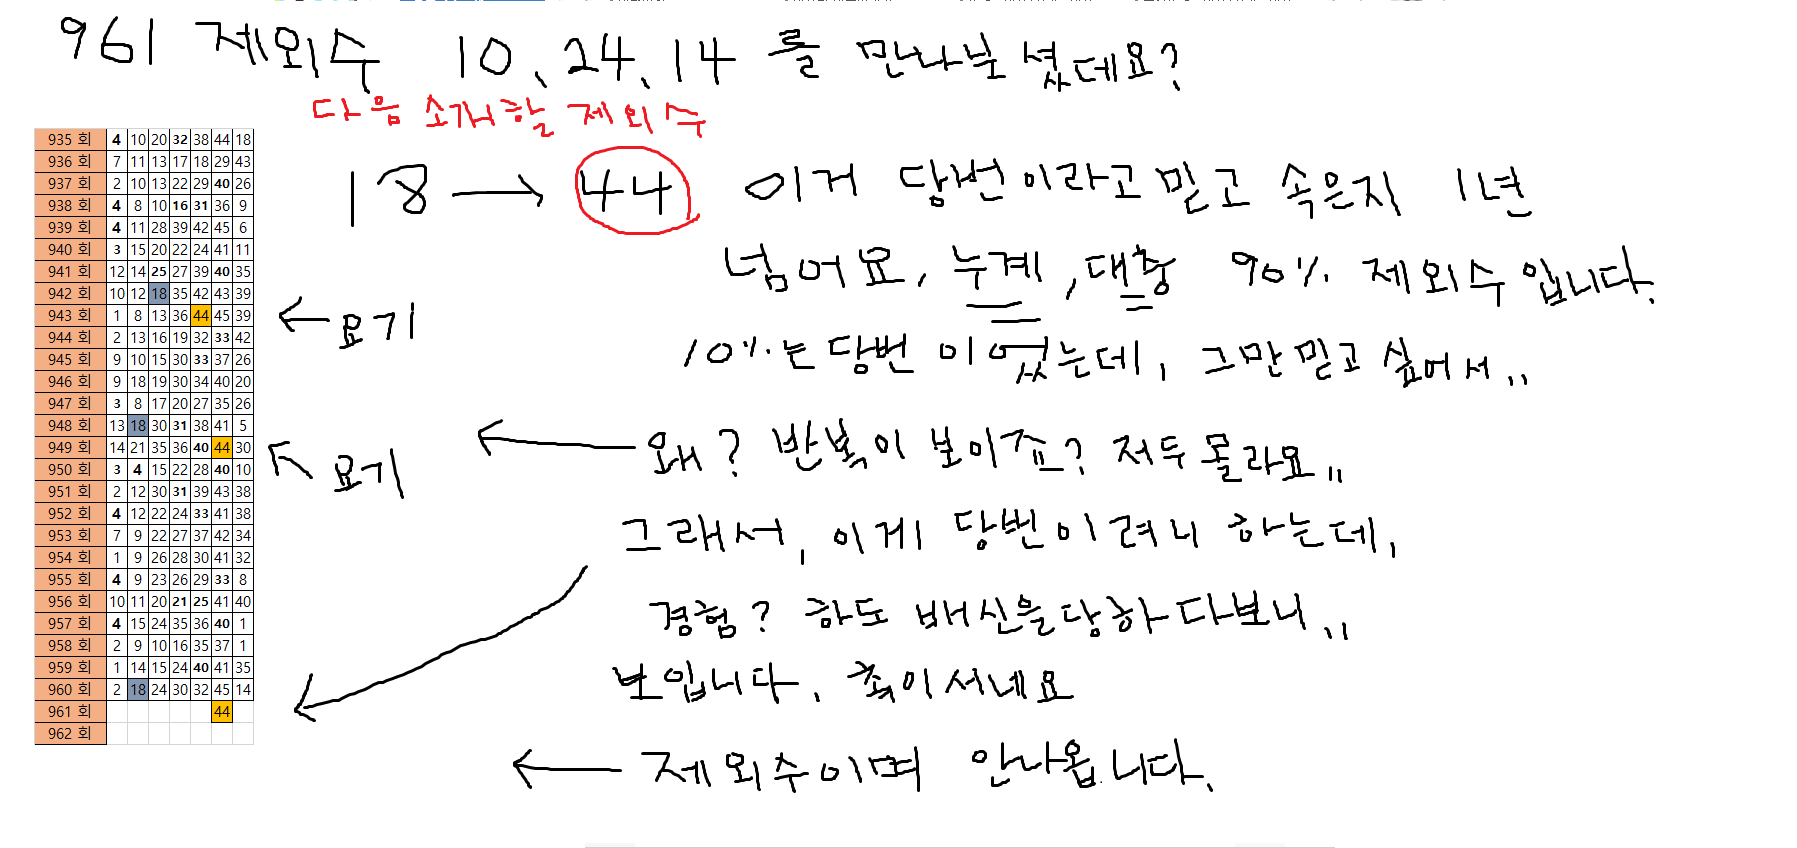 961 제외수 10, 24, 14 를 만나보셨데요?
다음 소개할 제외수
18 → 44 이거 당번이라고 믿고 속은지 1년
넘어요, 누계, 대충 90% 제외수입니다.
10%는 당번이었는데, 그만 믿고 싶어서,,
← 요기
← 왜? 반복이 보이쥬? 저두 몰라요,,
← 요기
그래서, 이게 당번이려니 하는데,
경험? 하도 배신을당하다보니,,
보입니다. 촉이서네요
← 제외수이며 안나옵니다.
935 회 4 10 20 32 38 44 18
936 회 7 11 13 17 18 29 43
937 회 2 10 13 22 29 40 26
938 회 4 8 10 16 31 36 9
939 회 4 11 28 39 42 45 6
940 회 3 15 20 22 24 41 11
941 회 12 14 25 27 39 40 35
942 회 10 12 18 35 42 43 39
943 회 1 8 13 36 44 45 39
944 회 2 13 16 19 32 33 42
945 회 9 10 15 30 33 37 26
946 회 9 18 19 30 34 40 20
947 회 3 8 17 20 27 35 26
948 회 13 18 30 31 38 41 5
949 회 14 21 35 36 40 44 30
950 회 3 4 15 22 28 40 10
951 회 2 12 30 31 39 43 38
952 회 4 12 22 24 33 41 38
953 회 7 9 22 27 37 42 34
954 회 1 9 26 28 30 41 32
955 회 4 9 23 26 29 33 8
956 회 10 11 20 21 25 41 40
957 회 4 15 24 35 36 40 1
958 회 2 9 10 16 35 37 1
959 회 1 14 15 24 40 41 35
960 회 2 18 24 30 32 45 14
961 회 44
962 회